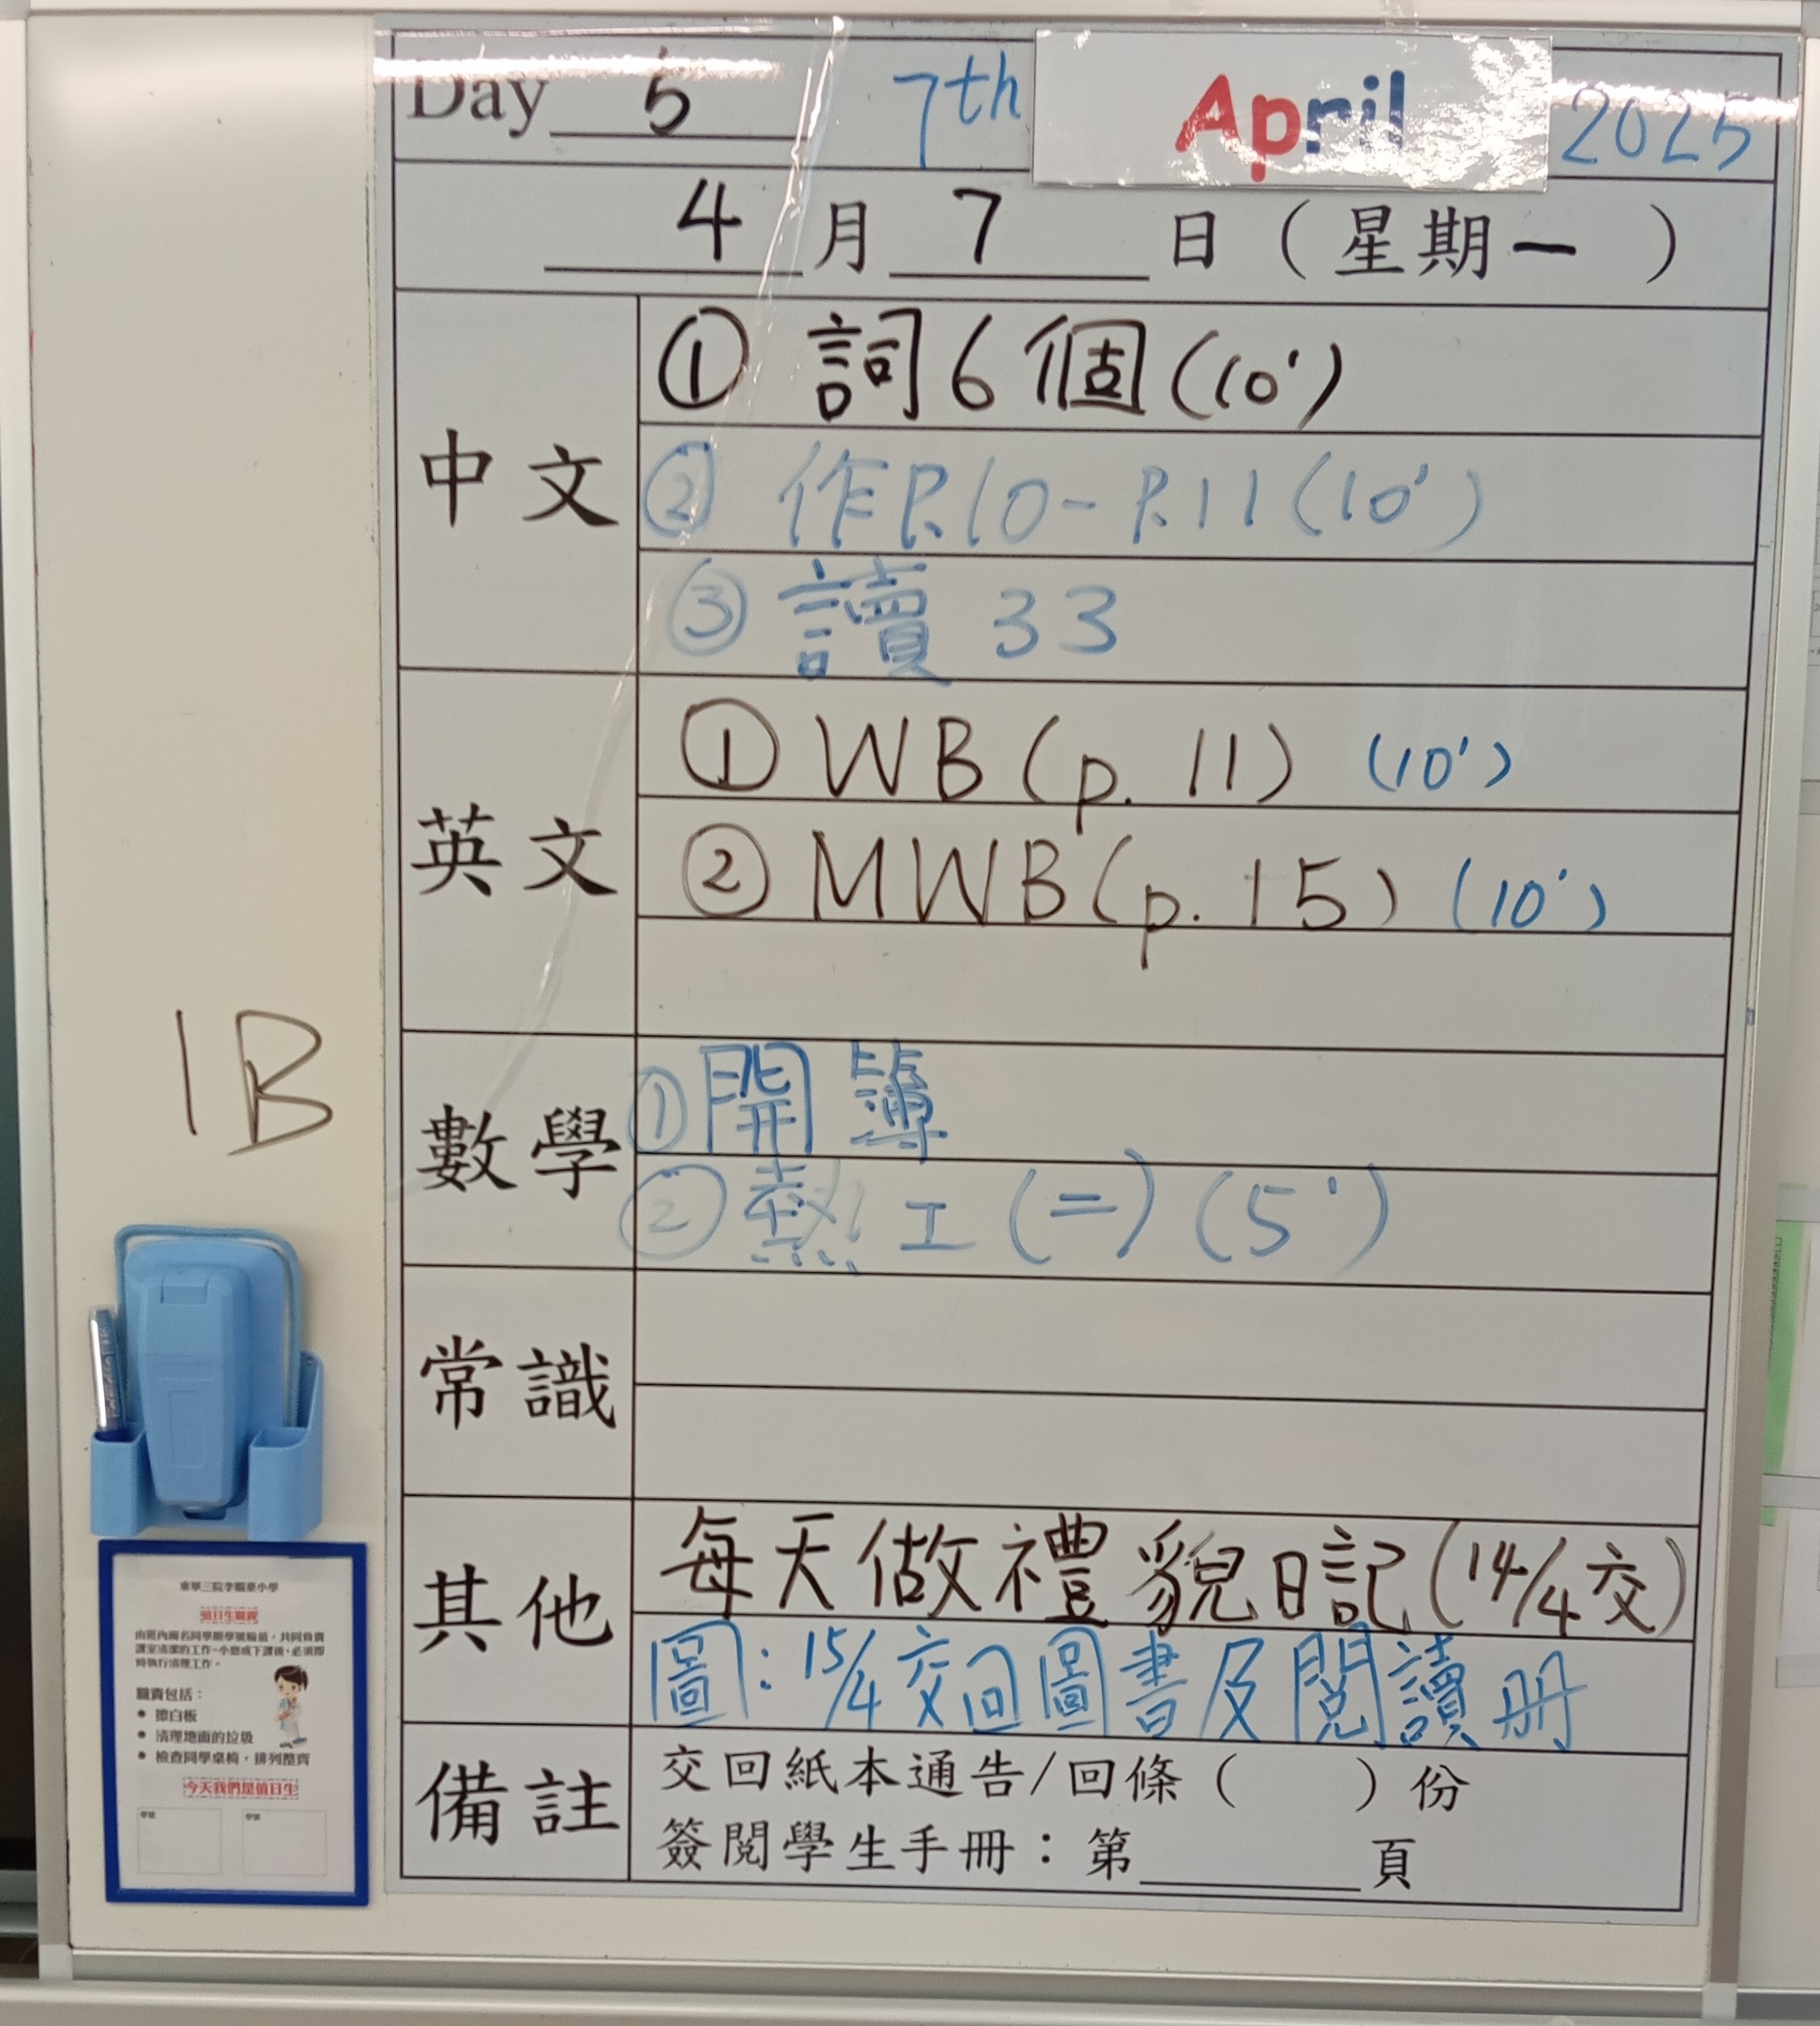 Day 5 7th April 2025
4 月 7 日 ( 星期一 )
中文
① 詞6個(10')
② 作P.10-P.11(10')
③ 讀 33
英文
① WB(p.11) (10')
② MWB(p.15) (10')
數學
① 開簿
② 熱工(二)(5')
常識
其他
每天做禮貌日記(14/4交)
圖:15/4交回圖書及閱讀册
備註
交回紙本通告/回條( )份
簽閱學生手冊:第____頁
1B
值日生職責
由班內兩名同學順學號輪值,共同負責
課室清潔的工作。小息或下課後,必須即
時執行清理工作。
職責包括:
● 擦白板
● 清理地面的垃圾
● 檢查同學桌椅,排列整齊
今天我們是值日生
學號 學號